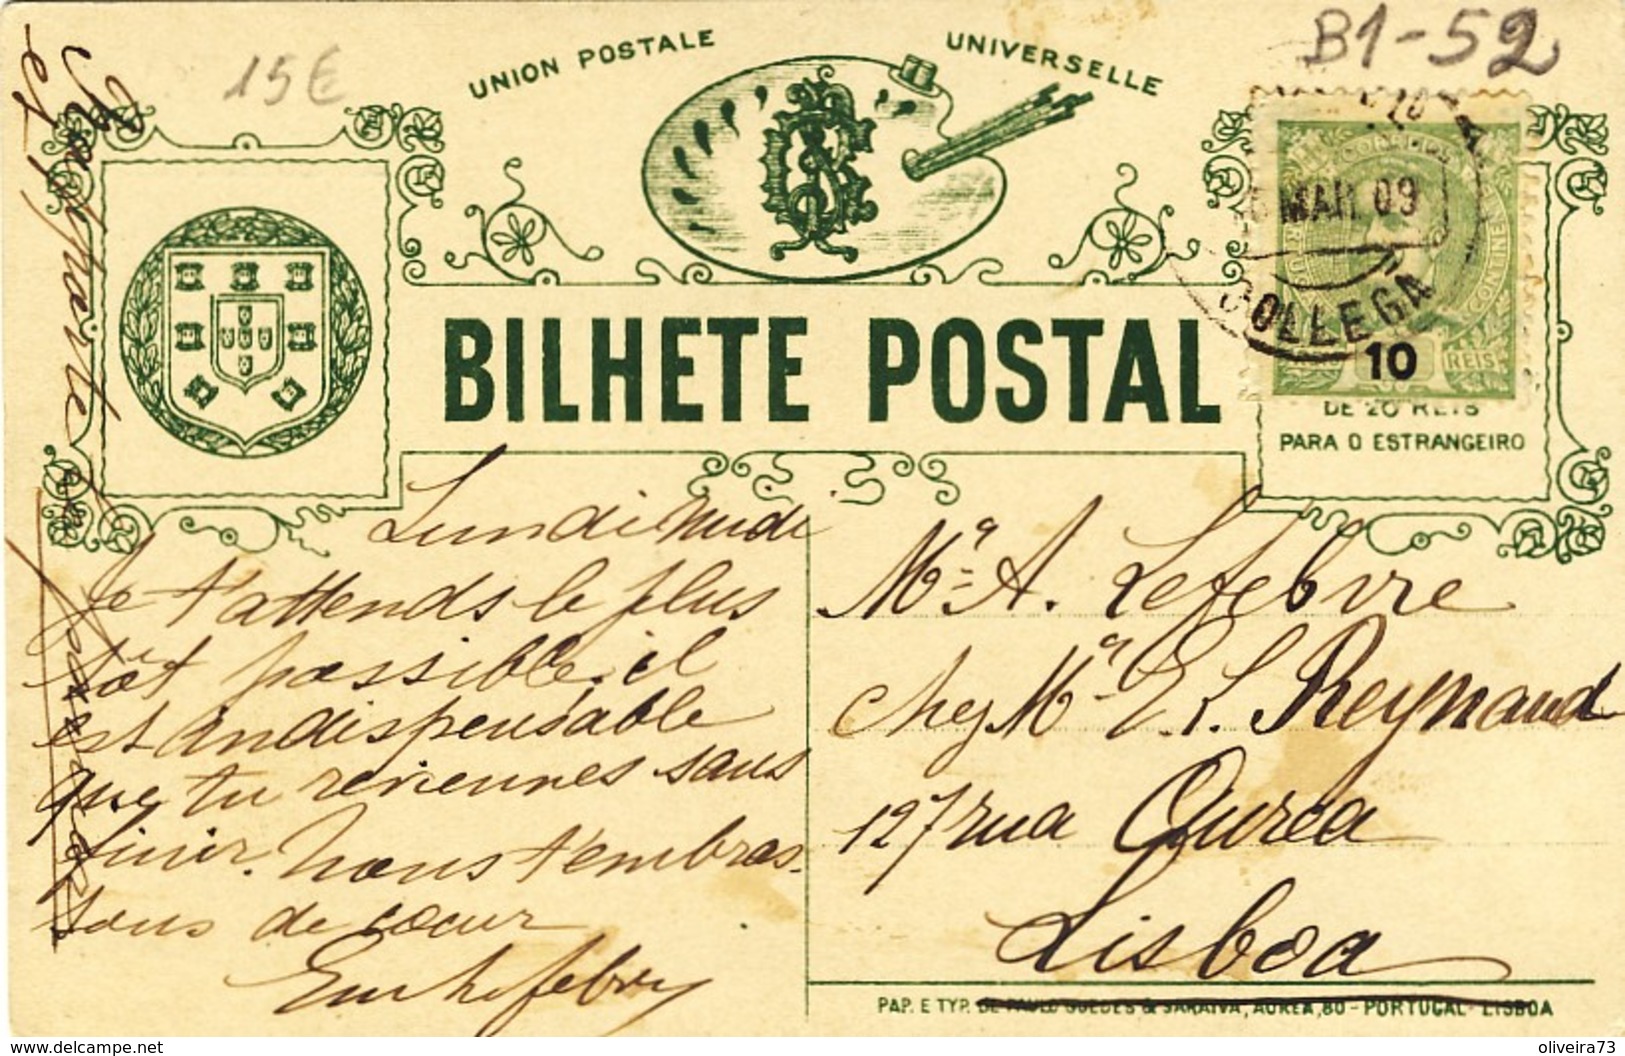 15€
B1-52
UNION POSTALE UNIVERSELLE
MAR 09
GOLLEGA
10
REIS
BILHETE POSTAL
DE 20 REIS
PARA O ESTRANGEIRO
Lundi Midi
Je t'attends le plus
tôt possible, il
est indispensable
que tu reviennes sans
finir. Nous t'embras-
sons de cœur
Lefebvre
Mª A. Lefebvre
chez Mª E L Reynaud
127 rua Aurea
Lisboa
PAP. E TYP. DE PAULO GUEDES & SARAIVA, AUREA, 80 - PORTUGAL - LISBOA
oliveira73